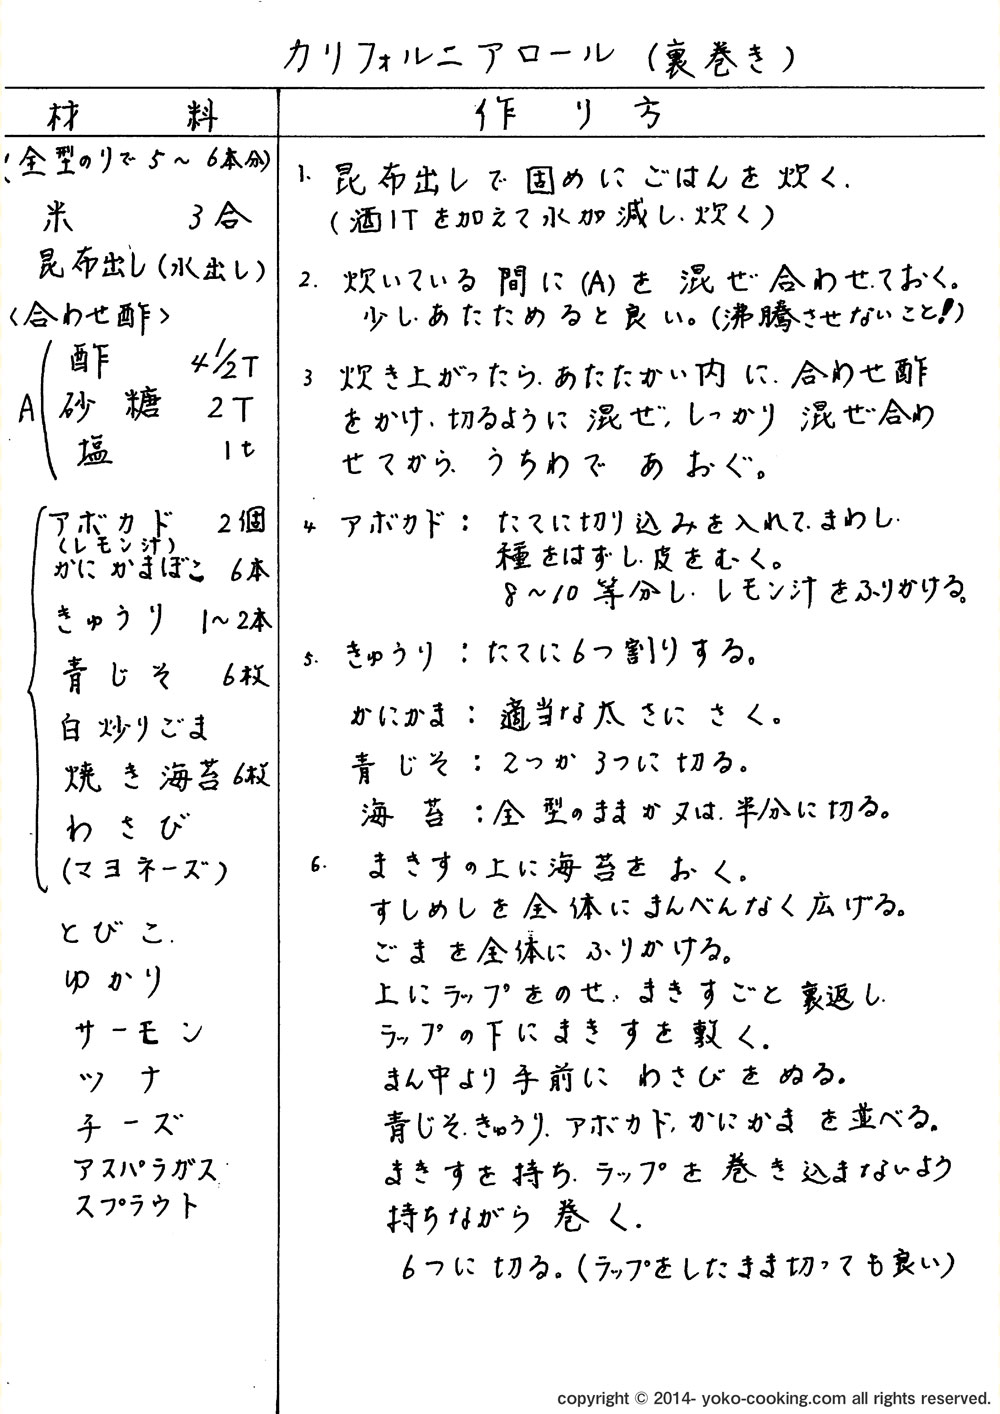 カリフォルニアロール (裏巻き)
材 料
(全型のりで 5～6本分)
米 3合
昆布出し(水出し)
<合わせ酢>
A
酢 4 1/2T
砂糖 2T
塩 1t
アボカド 2個
(レモン汁)
かにかまぼこ 6本
きゅうり 1～2本
青じそ 6枚
白炒りごま
焼き海苔 6枚
わさび
(マヨネーズ)
とびこ.
ゆかり
サーモン
ツナ
チーズ
アスパラガス
スプラウト
作り方
1. 昆布出しで固めにごはんを炊く.
(酒1Tを加えて水加減し.炊く)
2. 炊いている間に(A)を混ぜ合わせておく。
少し.あたためると良い。(沸騰させないこと!)
3 炊き上がったら.あたたかい内に.合わせ酢
をかけ.切るように混ぜ.しっかり混ぜ合わ
せてから.うちわであおぐ。
4 アボカド: たてに切り込みを入れて.まわし.
種をはずし.皮をむく。
8～10等分し.レモン汁をふりかける。
5. きゅうり: たてに6つ割りする。
かにかま: 適当な太さにさく。
青じそ: 2つか3つに切る。
海苔: 全型のままか又は.半分に切る。
6. まきすの上に海苔をおく。
すしめしを全体にまんべんなく広げる。
ごまを全体にふりかける。
上にラップをのせ.まきすごと裏返し.
ラップの下にまきすを敷く.
まん中より手前にわさびをぬる。
青じそ.きゅうり.アボカド.かにかまを並べる。
まきすを持ち.ラップを巻き込まないよう
持ちながら巻く.
6つに切る。(ラップをしたまま切っても良い)
copyright © 2014- yoko-cooking.com all rights reserved.